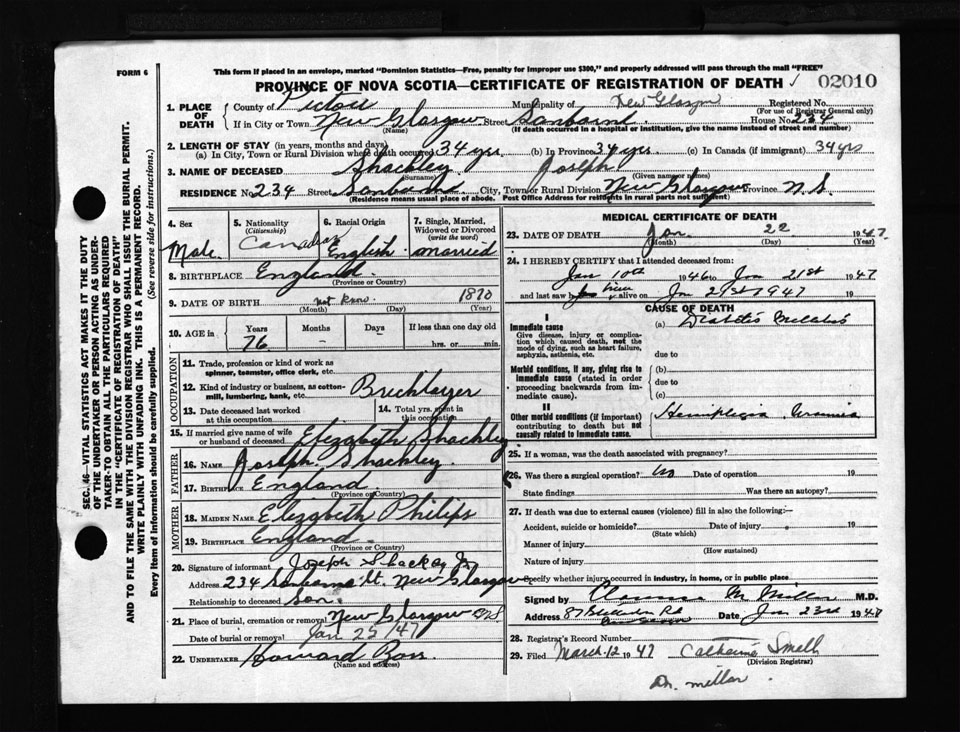 FORM 6
This form if placed in an envelope, marked "Dominion Statistics—Free, penalty for improper use $300," and properly addressed will pass through the mail "FREE"
PROVINCE OF NOVA SCOTIA—CERTIFICATE OF REGISTRATION OF DEATH
02010
SEC. 46—VITAL STATISTICS ACT MAKES IT THE DUTY
OF THE UNDERTAKER OR PERSON ACTING AS UNDER-
TAKER-TO OBTAIN ALL THE PARTICULARS REQUIRED
IN THE "CERTIFICATE OF REGISTRATION OF DEATH"
AND TO FILE THE SAME WITH THE DIVISION REGISTRAR WHO SHALL ISSUE THE BURIAL PERMIT.
WRITE PLAINLY WITH UNFADING INK. THIS IS A PERMANENT RECORD.
Every item of information should be carefully supplied. (See reverse side for instructions.)
1. PLACE OF DEATH
County of Pictou Municipality of New Glasgow Registered No.
(For use of Registrar General only)
If in City or Town New Glasgow Street House No. 234
(Name) (If death occurred in a hospital or institution, give the name instead of street and number)
2. LENGTH OF STAY (in years, months and days)
(a) In City, Town or Rural Division where death occurred 34 yrs (b) In Province 34 yrs (c) In Canada (if immigrant) 34 yrs
3. NAME OF DECEASED Shackley Joseph
(Surname) (Given name or names)
RESIDENCE No 234 Street City, Town or Rural Division New Glasgow Province N.S.
(Residence means usual place of abode. Post Office Address for residents in rural parts not sufficient)
4. Sex
Male
5. Nationality
(Citizenship)
Canadian
6. Racial Origin
English
7. Single, Married, Widowed or Divorced
(write the word)
married
8. BIRTHPLACE England
(Province or Country)
9. DATE OF BIRTH not know 1870
(Month) (Day) (Year)
10. AGE in
Years Months Days If less than one day old
76 – hrs. or min.
OCCUPATION
11. Trade, profession or kind of work as
spinner, teamster, office clerk, etc.
12. Kind of industry or business, as cotton-
mill, lumbering, bank, etc. Bricklayer
13. Date deceased last worked
at this occupation
14. Total yrs. spent in
this occupation
15. If married give name of wife
or husband of deceased Elizabeth Shackley
FATHER
16. Name Joseph Shackley
17. Birthplace England
(Province or Country)
MOTHER
18. Maiden Name Elizabeth Philips
19. Birthplace England
(Province or Country)
20. Signature of informant Joseph Shackley Jr
Address 234 St. New Glasgow
Relationship to deceased Son
21. Place of burial, cremation or removal New Glasgow N.S.
Date of burial or removal Jan 25/47
22. UNDERTAKER Howard Ross
(Name and address)
MEDICAL CERTIFICATE OF DEATH
23. DATE OF DEATH Jan 22 1947
(Month) (Day) (Year)
24. I HEREBY CERTIFY that I attended deceased from:
Jan 10th 1946 to Jan 21st 1947
and last saw him alive on Jan 21st 1947
CAUSE OF DEATH
I
Immediate cause
Give disease, injury or complica-
tion which caused death, not the
mode of dying, such as heart failure,
asphyxia, asthenia, etc.
(a) Diabetes Mellitus
due to
Morbid conditions, if any, giving rise to
immediate cause (stated in order
proceeding backwards from im-
mediate cause).
(b)
due to
(c)
II
Other morbid conditions (if important)
contributing to death but not
causally related to immediate cause.
Hemiplegia Uraemia
25. If a woman, was the death associated with pregnancy?
26. Was there a surgical operation? No Date of operation 19
State findings Was there an autopsy?
27. If death was due to external causes (violence) fill in also the following:—
Accident, suicide or homicide? Date of injury 19
(State which)
Manner of injury
(How sustained)
Nature of injury
Specify whether injury occurred in industry, in home, or in public place
Signed by Clarence M. Miller M.D.
Address 87 Rd Date Jan 23rd 1947
28. Registrar's Record Number
29. Filed March 12 1947 Catherine Smell
(Division Registrar)
Dr. Miller